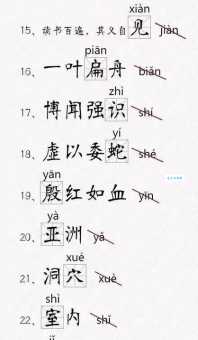 xiàn
15、读书百遍，其义自见 jiàn
piān
16、一叶扁舟 biǎn
zhì
17、博闻强识 shí
yí
18、虚以委蛇 shé
yān
19、殷红如血 yīn
yà
20、亚洲 yǎ
xué
21、洞穴 xuè
shì
22、室内 shǐ